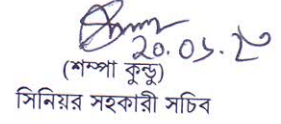 20.05.20
(শম্পা কুন্ডু)
সিনিয়র সহকারী সচিব